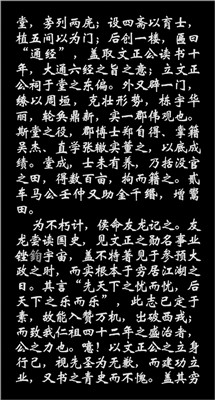 堂，旁列两庑；设四斋以育士，
植五间以为门；后创一楼，匾曰
“通经”，盖取文正公读书十
年，大通六经之旨之意；立文正
公祠于堂之东偏。外又辟一门，
缘以周垣，克壮形势，栋宇华
丽，轮奂鼎新，实一郡伟观也。
斯堂之役，郡博士郑自得、掌籍
吴杰、直学张辙实董之，以底成
绩。堂成，士未有养，乃括没官
之田，得数百亩，拘而籍之。贰
车马公壬仲又助金千缗，增置
田。
为不朽计，侯命友龙记之。友
龙尝读国史，见文正之勋名事业
铿鍧宇宙，盖不特著见于参预大
政之时，而实根本于穷居江湖之
日。其言“先天下之忧而忧，后
天下之乐而乐”，此志已定于
素，故能入赞万机，出破西戎；
而致我仁祖四十二年之盛治者，
公之力也。噫！以文正公之立身
行己，视先圣为无歉，而建功立
业，又书之青史而不愧。盖其穷